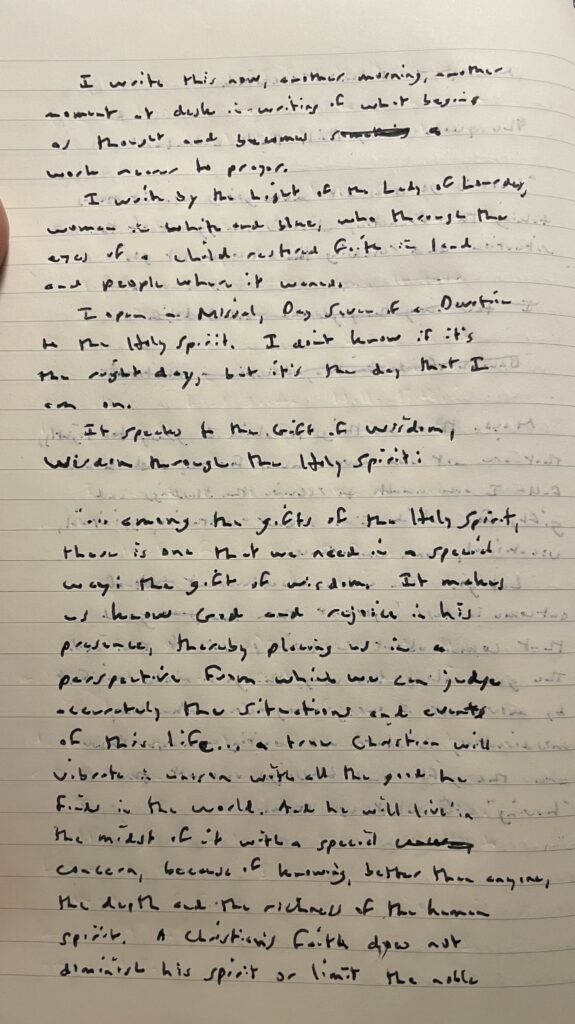 I write this now, another morning, another
moment at desk in writing of what begins
as thought and becomes a
work nearer to prayer.
I write by the Light of the Lady of Lourdes,
woman in white and blue, who through the
eyes of a child restored faith in land
and people where it waned.
I open a Missal, Day Seven of a Devotion
to the Holy Spirit. I don't know if it's
the right day, but it's the day that I
am on.
It speaks to the Gift of Wisdom,
Wisdom through the Holy Spirit:
"... among the gifts of the Holy Spirit,
there is one that we need in a special
way: the gift of wisdom. It makes
us know God and rejoice in his
presence, thereby placing us in a
perspective from which we can judge
accurately the situations and events
of this life... a true Christian will
vibrate in unison with all the good he
finds in the world. And he will live in
the midst of it with a special
concern, because of knowing, better than anyone,
the depth and the richness of the human
spirit. A Christian's faith does not
diminish his spirit or limit the noble